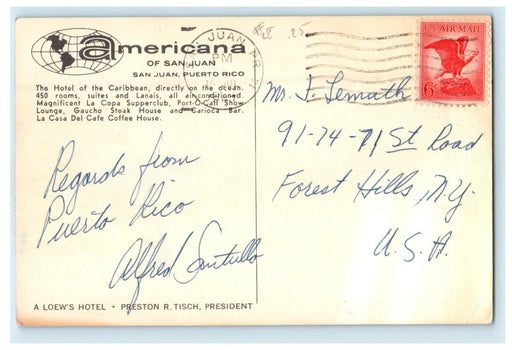 americana
OF SAN JUAN
SAN JUAN, PUERTO RICO
The Hotel of the Caribbean, directly on the ocean.
450 rooms, suites and Lanais, all airconditioned.
Magnificent La Copa Supperclub, Port-O-Call Show
Lounge, Gaucho Steak House and Carioca Bar.
La Casa Del Cafe Coffee House.
JUAN, P.R.
PM
.25
U.S. AIR MAIL
6c
Mr. I. Lemuth
91-74-71 St Road
Forest Hills, N.Y.
U.S.A.
Regards from
Puerto Rico
Alfred Santullo
A LOEW'S HOTEL • PRESTON R. TISCH, PRESIDENT